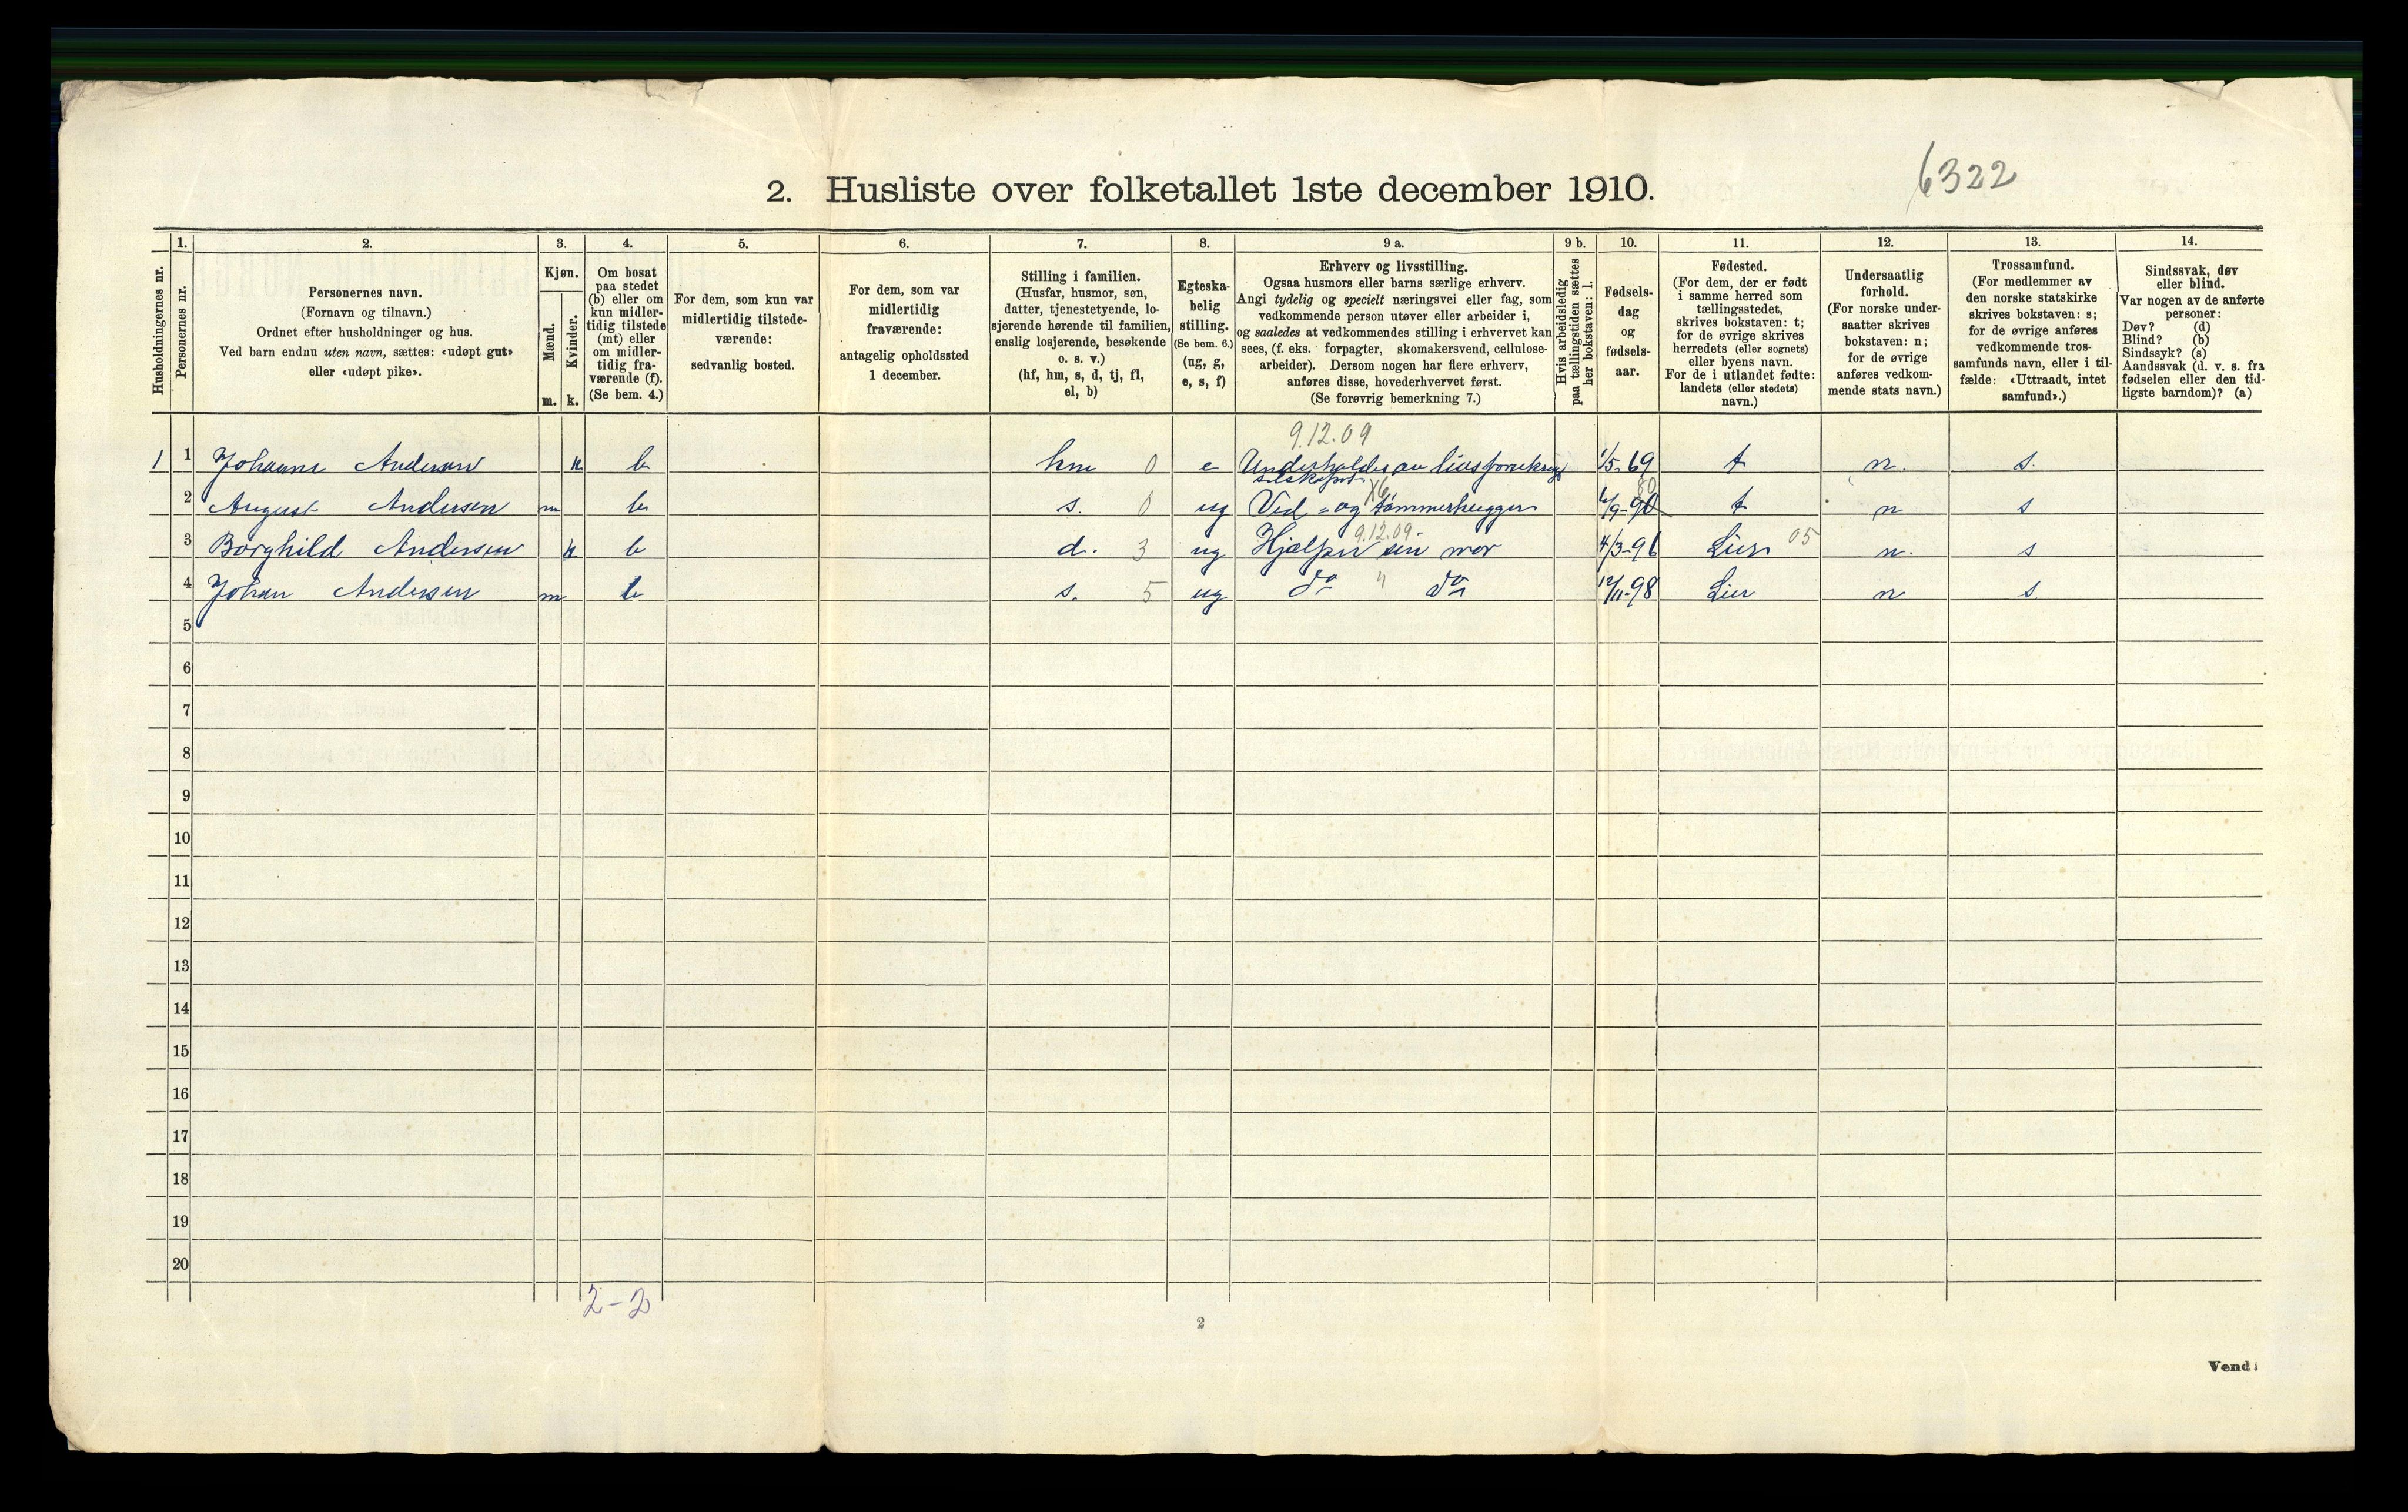 6322
2. Husliste over folketallet 1ste december 1910.
1. 2. 3. 4. 5. 6. 7. 8. 9 a. 9 b. 10. 11. 12. 13. 14.
Husholdningernes nr.
Personernes nr.
Personernes navn.
(Fornavn og tilnavn.)
Ordnet efter husholdninger og hus.
Ved barn endnu uten navn, sættes: «udøpt gut»
eller «udøpt pike».
Kjøn.
Mænd.
Kvinder.
m. k.
Om bosat
paa stedet
(b) eller om
kun midler-
tidig tilstede
(mt) eller
om midler-
tidig fra-
værende (f).
(Se bem. 4.)
For dem, som kun var
midlertidig tilstede-
værende:
sedvanlig bosted.
For dem, som var
midlertidig
fraværende:
antagelig opholdssted
1 december.
Stilling i familien.
(Husfar, husmor, søn,
datter, tjenestetyende, lo-
sjerende hørende til familien,
enslig losjerende, besøkende
o. s. v.)
(hf, hm, s, d, tj, fl,
el, b)
Egteska-
belig
stilling.
(Se bem. 6.)
(ug, g,
e, s, f)
Erhverv og livsstilling.
Ogsaa husmors eller barns særlige erhverv.
Angi tydelig og specielt næringsvei eller fag, som
vedkommende person utøver eller arbeider i,
og saaledes at vedkommendes stilling i erhvervet kan
sees, (f. eks. forpagter, skomakersvend, cellulose-
arbeider). Dersom nogen har flere erhverv,
anføres disse, hovederhvervet først.
(Se forøvrig bemerkning 7.)
Hvis arbeidsledig
paa tællingstiden sættes
her bokstaven: l.
Fødsels-
dag
og
fødsels-
aar.
Fødested.
(For dem, der er født
i samme herred som
tællingsstedet,
skrives bokstaven: t;
for de øvrige skrives
herredets (eller sognets)
eller byens navn.
For de i utlandet fødte:
landets (eller stedets)
navn.)
Undersaatlig
forhold.
(For norske under-
saatter skrives
bokstaven: n;
for de øvrige
anføres vedkom-
mende stats navn.)
Trossamfund.
(For medlemmer av
den norske statskirke
skrives bokstaven: s;
for de øvrige anføres
vedkommende tros-
samfunds navn, eller i til-
fælde: «Uttraadt, intet
samfund».)
Sindssvak, døv
eller blind.
Var nogen av de anførte
personer:
Døv? (d)
Blind? (b)
Sindssyk? (s)
Aandssvak (d. v. s. fra
fødselen eller den tid-
ligste barndom)? (a)
9.12.09
1 1 Johanne Andersen k b hm 0 e Underholdes av livsforsikrings 1/5-69 t n. s.
selskapet
2 August Andersen m b s. 0 ug Ved- og tømmerhugger 6/9-90 t n s
X6
80
3 Borghild Andersen k b d. 3 ug Hjælper sin mor 4/3-96 Lier 05 n. s
9.12.09-
4 Johan Andersen m b s. 5 ug do " do 12/11-98 Lier n s.
5
6
7
8
9
10
11
12
13
14
15
16
17
18
19
20
2-2
2
Vend!